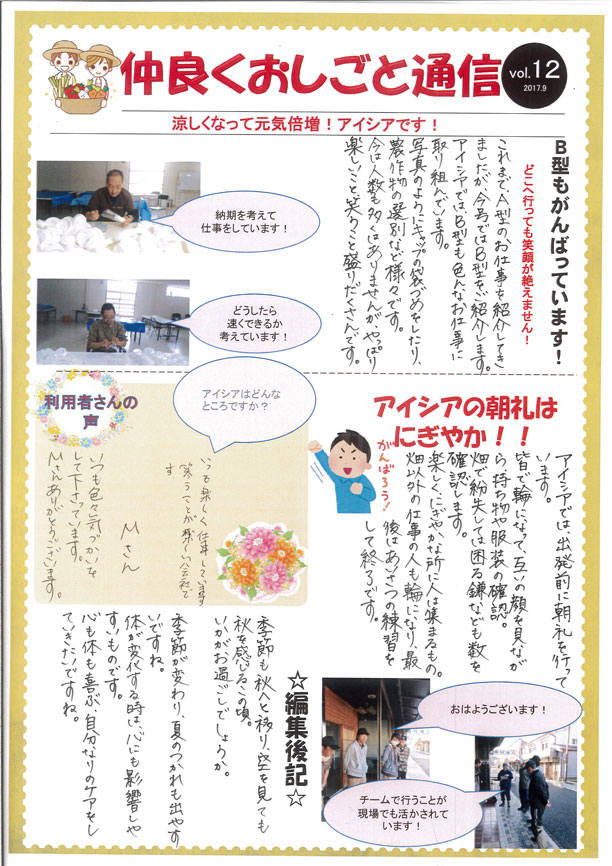 仲良くおしごと通信
vol.12
2017.9
涼しくなって元気倍増！アイシアです！
B型もがんばっています！
どこへ行っても笑顔が絶えません！
これまで、A型のお仕事を紹介してき
ましたが、今号ではB型をご紹介します。
アイシアでは、B型も色んなお仕事に
取り組んでいます。
写真のようにキャップの袋づめをしたり、
農作物の選別など様々です。
今は人数も多くはありませんが、やっぱり
楽しいこと、笑うこと盛りだくさんです。
納期を考えて
仕事をしています！
どうしたら
速くできるか
考えています！
利用者さんの
声
アイシアはどんな
ところですか？
いつも楽しく仕事しています
笑うことが楽しい会社で
す
Mさん
いつも色々気づかいを
して下さっています。
Mさんありがとうございます。
アイシアの朝礼は
にぎやか！！
がんばろう！
アイシアでは、出発前に朝礼を行って
います。
皆で輪になって、互いの顔を見なが
ら、持ち物や服装の確認。
畑で紛失しては困る鎌なども数を
確認します。
楽しくにぎやかな所に人は集まるもの。
畑以外の仕事の人も輪になり、最
後はあいさつの練習を
して終了です。
おはようございます！
チームで行うことが
現場でも活かされて
います！
☆編集後記☆
季節も秋へと移り、空を見ても
秋を感じるこの頃。
いかがお過ごしでしょうか。
季節が変わり、夏のつかれも出やす
いですね。
体が変化する時は、心にも影響しや
すいものです。
心も体も喜ぶ、自分なりのケアをし
ていきたいですね。